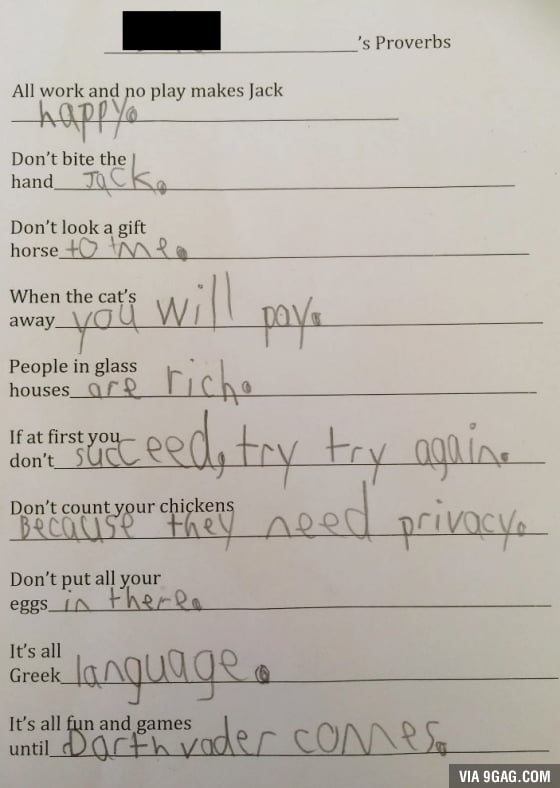 's Proverbs
All work and no play makes Jack
happy.
Don't bite the
hand Jack.
Don't look a gift
horse to me.
When the cat's
away you will pay.
People in glass
houses are rich.
If at first you
don't succeed, try try again.
Don't count your chickens
Because they need privacy.
Don't put all your
eggs in there.
It's all
Greek language.
It's all fun and games
until Darth vader comes.
VIA 9GAG.COM